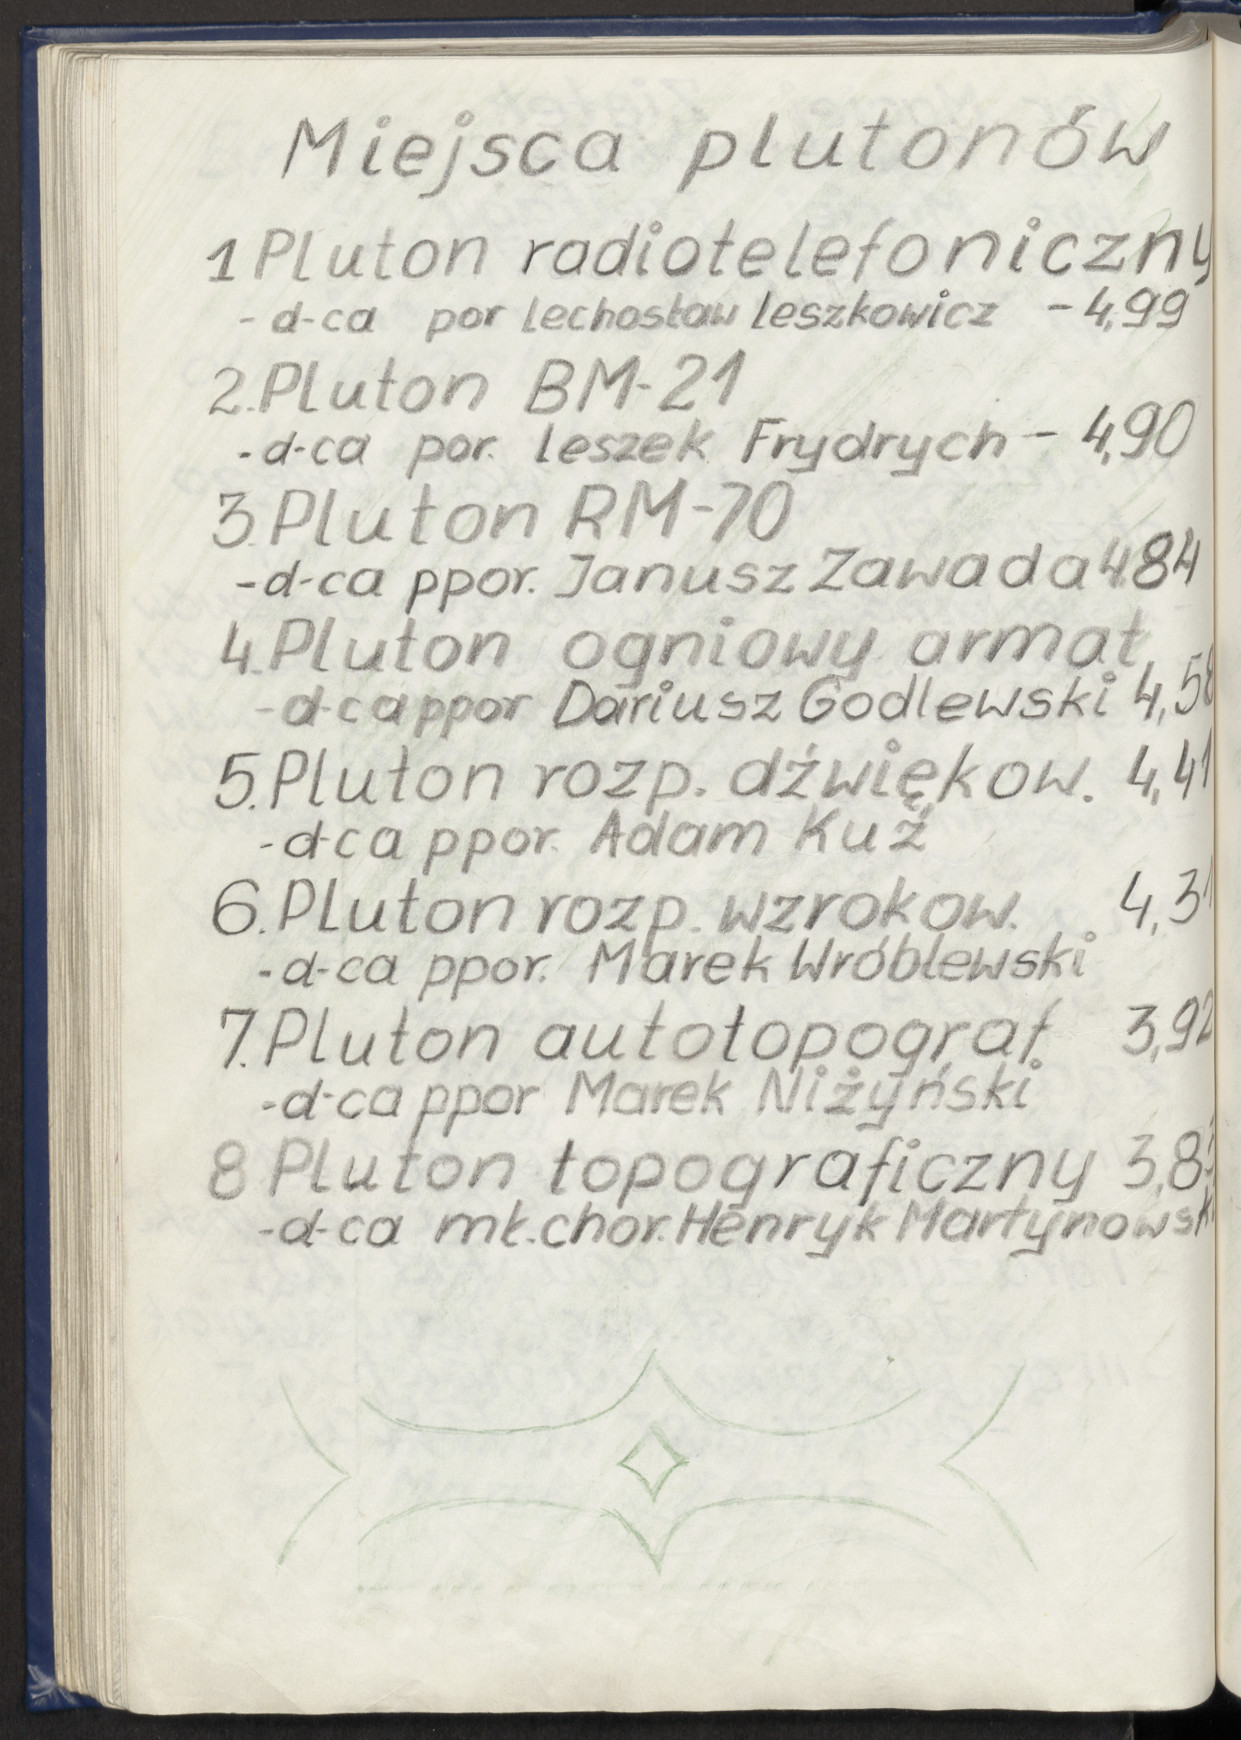 Miejsca plutonów
1 Pluton radiotelefoniczny
- d-ca por Lechosław Leszkowicz - 4,99
2. Pluton BM-21
- d-ca por. Leszek Frydrych - 4,90
3. Pluton RM-70
- d-ca ppor. Janusz Zawada 4 84
4. Pluton ogniowy armat
- d-ca ppor Dariusz Godlewski 4,58
5. Pluton rozp. dźwiękow. 4,41
- d-ca ppor. Adam Kuź
6. Pluton rozp. wzrokow.
- d-ca ppor. Marek Wróblewski
7. Pluton autotopograf. 3,92
- d-ca ppor Marek Niżyński
8 Pluton topograficzny
- d-ca mł. chor. Henryk Martynowski